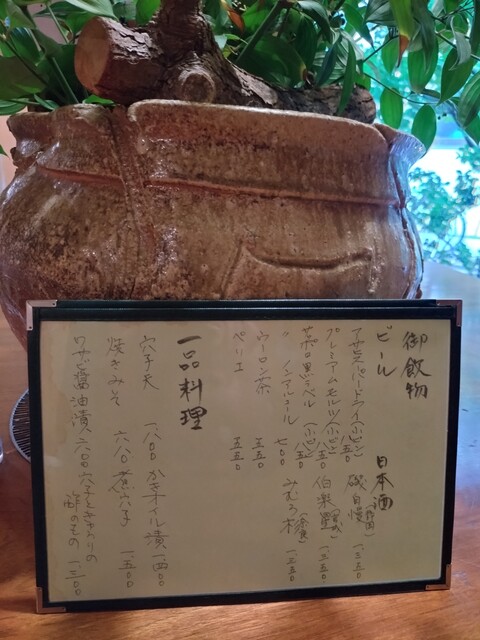 御飲物
ビール
アサヒスーパードライ(小ビン) 八五〇
プレミアムモルツ(小ビン) 八五〇
サッポロ黒ラベル(小ビン) 八五〇
〃 ノンアルコール 七〇〇
ウーロン茶 五五〇
ペリエ 五五〇
日本酒
磯自慢(静岡) 一、三五〇
伯楽星(宮城) 一、三五〇
みむろ杉(奈良) 一、三五〇
一品料理
穴子天 一、八〇〇
焼きみそ 六八〇
ワサビ醤油漬 六〇〇
かきオイル漬 一、四〇〇
煮穴子 一、五〇〇
穴子ときゅうりの
酢のもの 一、三〇〇